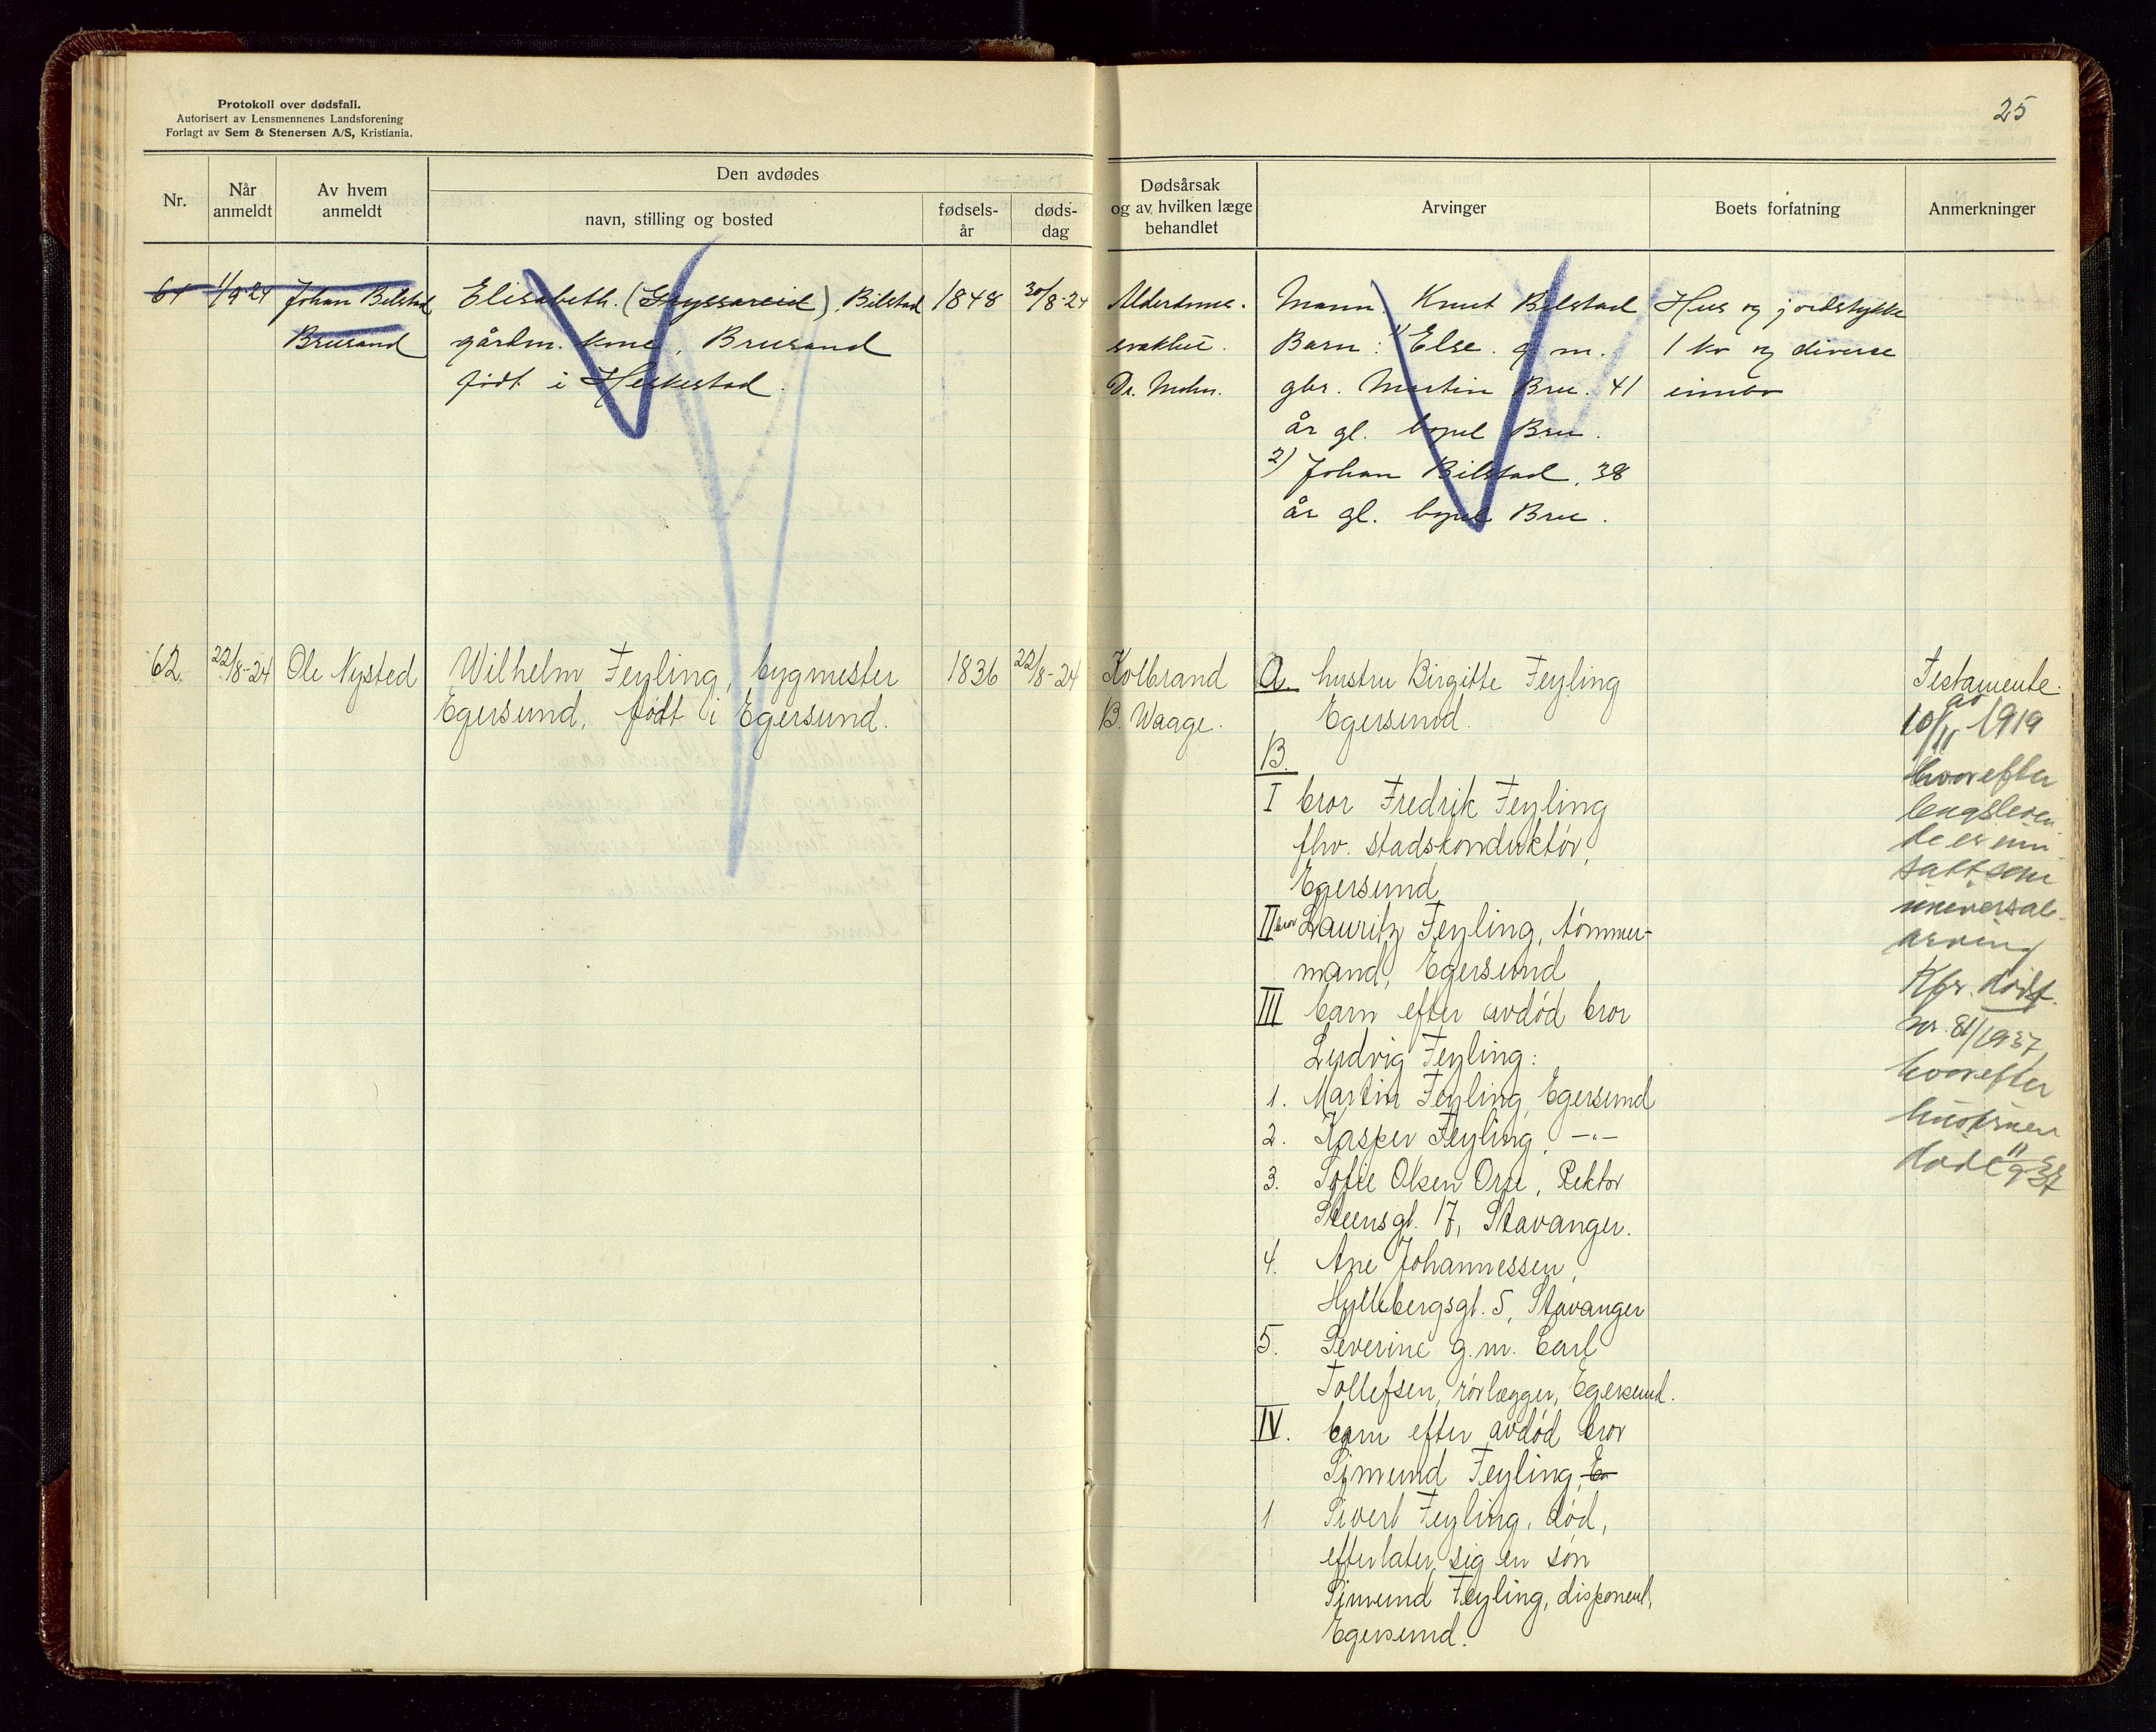 Protokoll over dødsfall.
Autorisert av Lensmennenes Landsforening
Forlagt av Sem & Stenersen A/S, Kristiania.
25
Nr.
Når
anmeldt
Av hvem
anmeldt
Den avdødes
navn, stilling og bosted
fødsels-
år
døds-
dag
Dødsårsak
og av hvilken læge
behandlet
Arvinger
Boets forfatning
Anmerkninger
61
1/9-24
Johan Bilstad
Brusand
Elisabeth. ( ) Bilstad
gårdm. kone, Brusand
født i Heskestad.
1848
30/8-24
Alderdoms-
svakhet.
Dr. Mohn.
Mann. Knut Bilstad
Barn: 1) Else. g. m.
gbr. Martin Bru. 41
år gl. bopel Bru.
2) Johan Bilstad. 38
år gl. bopel Bru.
Hus og jordstykke
1 ko og diverse
innbo
62.
22/8-24
Ole Nysted
Wilhelm Feyling, bygmester
Egersund, født i Egersund.
1836
22/8-24
Kolbrand
B. Waage.
A. hustru Birgitte Feyling
Egersund.
B.
I bror Fredrik Feyling
fhv. stadskonduktør,
Egersund
II bror Lauritz Feyling, tømmer-
mand, Egersund
III barn efter avdød bror
Ludvig Feyling:
1. Martin Feyling, Egersund
2. Kasper Feyling, -"-
3. Sofie Olsen Orre, Rektor
Steensgt. 17, Stavanger.
4. Ane Johannessen,
Hyllebergsgt. 5, Stavanger
5. Severine g.m. Carl
Tollefsen, rørlægger, Egersund.
IV. barn efter avdød bror
Simund Feyling, E
1 Sivert Feyling, død,
efterlater sig en søn
Simund Feyling, disponent,
Egersund.
Testamente
av
10/11 1919
hvorefter
lengsleven-
de er inn-
satt som
universal-
arving
Kfr. dødsf.
nr. 81/1937,
hvorefter
hustruen
døde 11/9 37